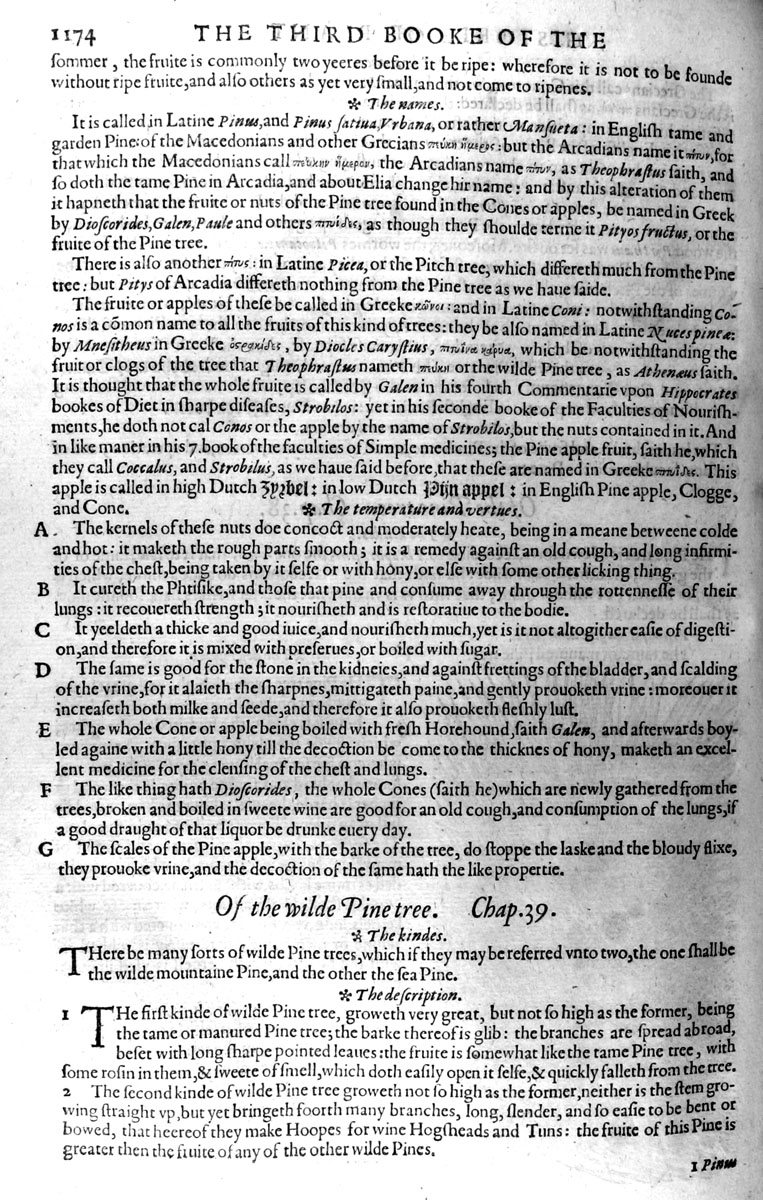 1174 THE THIRD BOOKE OF THE
sommer, the fruite is commonly two yeeres before it be ripe: wherefore it is not to be founde
without ripe fruite, and also others as yet very small, and not come to ripenes.
✻ The names.
It is called in Latine Pinus, and Pinus satiua, Vrbana, or rather Mansueta: in English tame and
garden Pine: of the Macedonians and other Grecians πεύκη ἥμερος: but the Arcadians name it πίτυν, for
that which the Macedonians call πεύκην ἥμερον, the Arcadians name πίτυν, as Theophrastus saith, and
so doth the tame Pine in Arcadia, and about Elia change hir name: and by this alteration of them
it hapneth that the fruite or nuts of the Pine tree found in the Cones or apples, be named in Greek
by Dioscorides, Galen, Paule and others πιτυΐδες, as though they shoulde terme it Pityos fructus, or the
fruite of the Pine tree.
There is also another πίτυς: in Latine Picea, or the Pitch tree, which differeth much from the Pine
tree: but Pitys of Arcadia differeth nothing from the Pine tree as we haue saide.
The fruite or apples of these be called in Greeke κῶνοι: and in Latine Coni: notwithstanding Co-
nos is a cōmon name to all the fruits of this kind of trees: they be also named in Latine Nuces pineæ:
by Mnesitheus in Greeke ὀστρακίδες, by Diocles Carystius, πιτύϊνα κάρυα, which be notwithstanding the
fruit or clogs of the tree that Theophrastus nameth πεύκη or the wilde Pine tree, as Athenæus saith.
It is thought that the whole fruite is called by Galen in his fourth Commentarie vpon Hippocrates
bookes of Diet in sharpe diseases, Strobilos: yet in his seconde booke of the Faculties of Nourish-
ments, he doth not cal Conos or the apple by the name of Strobilos, but the nuts contained in it. And
in like maner in his 7. book of the faculties of Simple medicines; the Pine apple fruit, saith he, which
they call Coccalus, and Strobilus, as we haue said before, that these are named in Greeke πιτυΐδες. This
apple is called in high Dutch Zyrbel: in low Dutch Pijn appel: in English Pine apple, Clogge,
and Cone. ✻ The temperature and vertues.
A The kernels of these nuts doe concoct and moderately heate, being in a meane betweene colde
and hot: it maketh the rough parts smooth; it is a remedy against an old cough, and long infirmi-
ties of the chest, being taken by it selfe or with hony, or else with some other licking thing.
B It cureth the Phtisike, and those that pine and consume away through the rottennesse of their
lungs: it recouereth strength; it nourisheth and is restoratiue to the bodie.
C It yeeldeth a thicke and good iuice, and nourisheth much, yet is it not altogither easie of digesti-
on, and therefore it is mixed with preserues, or boiled with sugar.
D The same is good for the stone in the kidneies, and against frettings of the bladder, and scalding
of the vrine, for it alaieth the sharpnes, mittigateth paine, and gently prouoketh vrine: moreouer it
increaseth both milke and seede, and therefore it also prouoketh fleshly lust.
E The whole Cone or apple being boiled with fresh Horehound, saith Galen, and afterwards boy-
led againe with a little hony till the decoction be come to the thicknes of hony, maketh an excel-
lent medicine for the clensing of the chest and lungs.
F The like thing hath Dioscorides, the whole Cones (saith he) which are newly gathered from the
trees, broken and boiled in sweete wine are good for an old cough, and consumption of the lungs, if
a good draught of that liquor be drunke euery day.
G The scales of the Pine apple, with the barke of the tree, do stoppe the laske and the bloudy flixe,
they prouoke vrine, and the decoction of the same hath the like propertie.
Of the wilde Pine tree. Chap. 39.
✻ The kindes.
THere be many sorts of wilde Pine trees, which if they may be referred vnto two, the one shall be
the wilde mountaine Pine, and the other the sea Pine.
✻ The description.
1 THe first kinde of wilde Pine tree, groweth very great, but not so high as the former, being
the tame or manured Pine tree; the barke thereof is glib: the branches are spread abroad,
beset with long sharpe pointed leaues: the fruite is somewhat like the tame Pine tree, with
some rosin in them, & sweete of smell, which doth easily open it selfe, & quickly falleth from the tree.
2 The second kinde of wilde Pine tree groweth not so high as the former, neither is the stem gro-
wing straight vp, but yet bringeth foorth many branches, long, slender, and so easie to be bent or
bowed, that heereof they make Hoopes for wine Hogsheads and Tuns: the fruite of this Pine is
greater then the fruite of any of the other wilde Pines.
1 Pinus